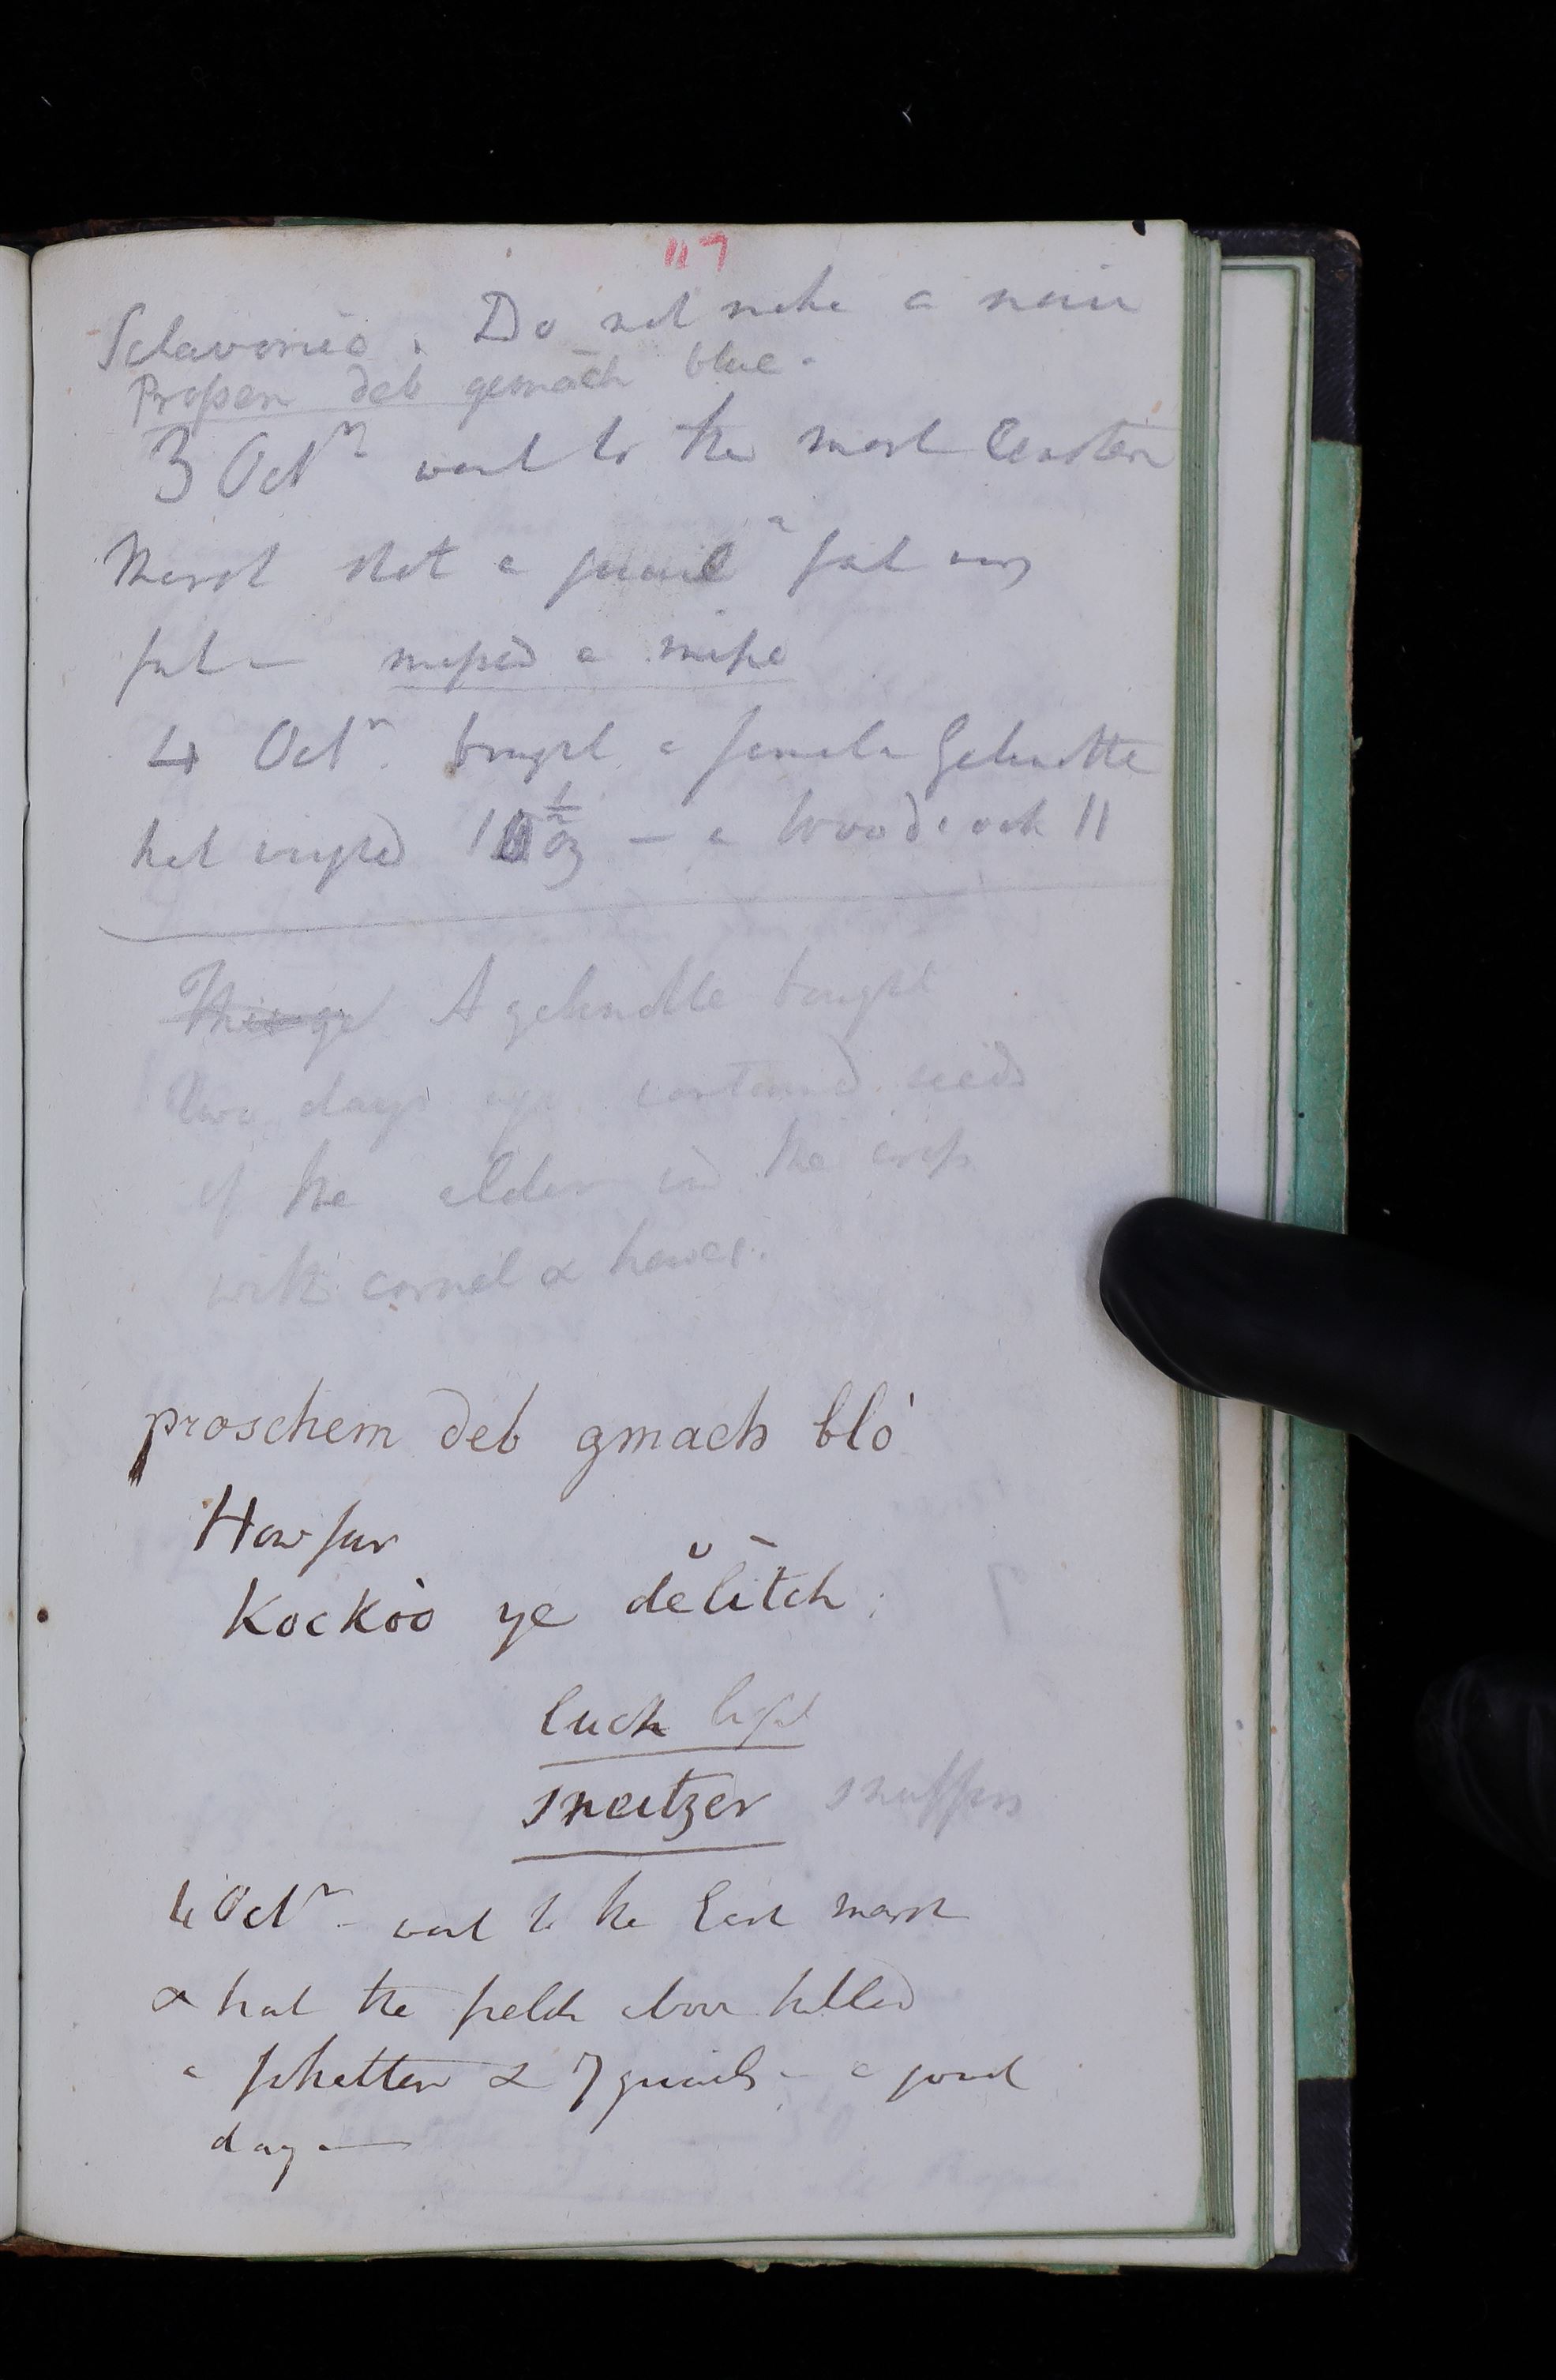 117
Sclavonic. Do not make a noise
Prossen deb gemāch blue.
3 Oct^r went to the most Eastern
Marsh shot a quail a fat very
fat — missed a snipe
4 Oct^r. bought a female Gelinotte
that weighed 10 1/2 oz — a Woodcock 11
This ge A gelinotte bought
two days ago contained seeds
of the alder in the crop
with cornel & hawes.
proschem deb gmach blò
How far
Kockoò ye dĕlītch.
luch light
sneutzer snuffers
4 Oct^r – went to the East marsh
& the fields above killed
a & 7 quails – a good
day —